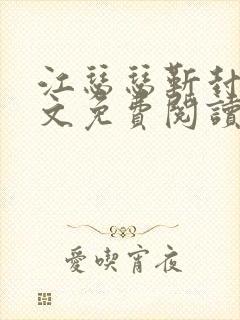 江瑟瑟靳封
文免費閱讀
愛喫宵夜